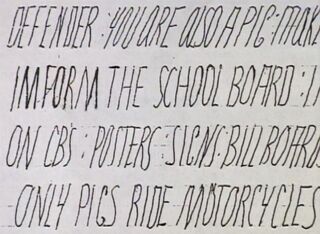 DEFENDER : YOU ARE ALSO A PIG : MAKE
IMFORM THE SCHOOL BOARD :
ON CB'S : POSTERS : SIGNS : BILLBOARD
ONLY PIGS RIDE MOTORCYCLES